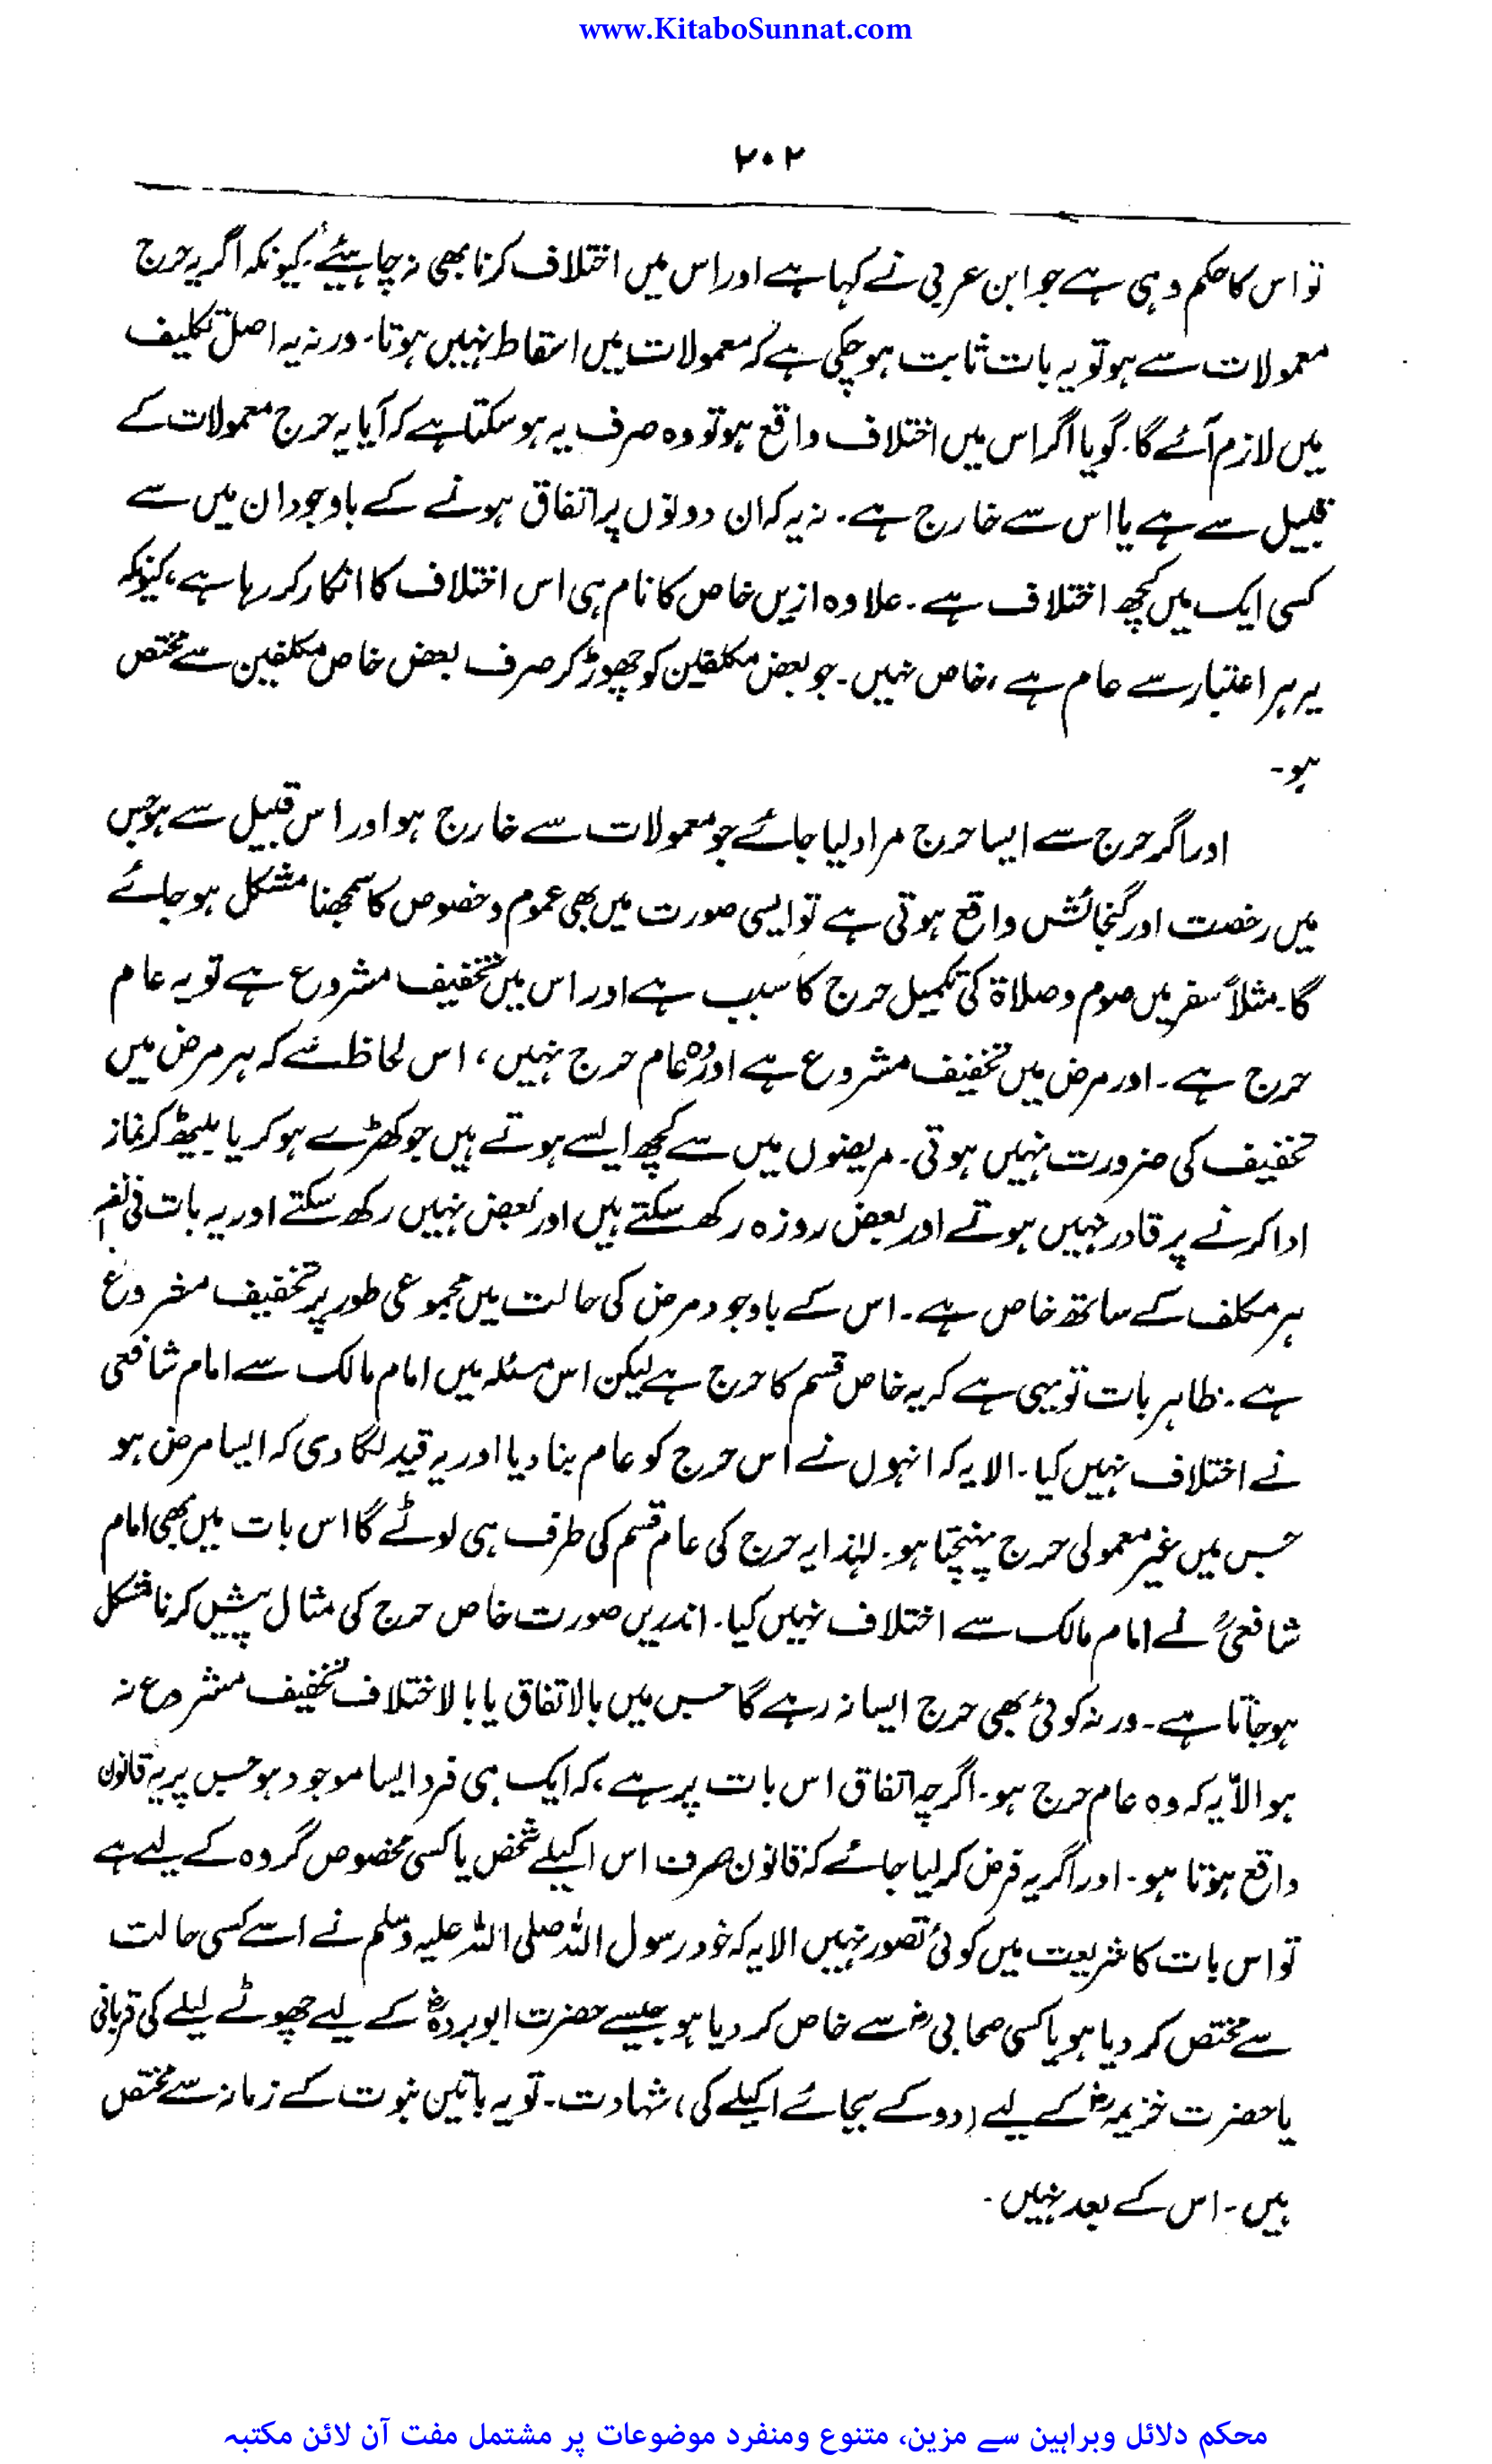 www.KitaboSunnat.com
۲۰۲
تو اس کا حکم وہی ہے جو ابن عربی نے کہا ہے اور اس میں اختلاف کرنا بھی نہ چاہیئے۔ کیونکہ اگر یہ حرج
معمولات سے ہو تو یہ بات ثابت ہو چکی ہے کہ معمولات میں اسقاط نہیں ہوتا۔ ورنہ یہ اصل تکلیف
میں لازم آئے گا۔ گویا اگر اس میں اختلاف واقع ہو تو وہ صرف یہ ہو سکتا ہے کہ آیا یہ حرج معمولات کے
قبیل سے ہے یا اس سے خارج ہے۔ نہ یہ کہ ان دونوں پر اتفاق ہونے کے باوجود ان میں سے
کسی ایک میں کچھ اختلاف ہے۔ علاوہ ازیں خاص کا نام ہی اس اختلاف کا انکار کر رہا ہے، کیونکہ
یہ ہر اعتبار سے عام ہے، خاص نہیں۔ جو بعض مکلفین کو چھوڑ کر صرف بعض خاص مکلفین سے مختص
ہو۔
اور اگر حرج سے ایسا حرج مراد لیا جائے جو معمولات سے خارج ہو اور اس قبیل سے ہو جس
میں رخصت اور گنجائش واقع ہوتی ہے تو ایسی صورت میں بھی عموم و خصوص کا سمجھنا مشکل ہو جائے
گا۔ مثلاً سفر میں صوم و صلاۃ کی تکمیل حرج کا سبب ہے اور اس میں تخفیف مشروع ہے تو یہ عام
حرج ہے۔ اور مرض میں تخفیف مشروع ہے اور وہ عام حرج نہیں، اس لحاظ سے کہ ہر مرض میں
تخفیف کی ضرورت نہیں ہوتی۔ مریضوں میں سے کچھ ایسے ہوتے ہیں جو کھڑے ہو کر یا بیٹھ کر نماز
ادا کرنے پر قادر نہیں ہوتے اور بعض روزہ رکھ سکتے ہیں اور بعض نہیں رکھ سکتے اور یہ بات فی نفسہٖ
ہر مکلف کے ساتھ خاص ہے۔ اس کے باوجود مرض کی حالت میں مجموعی طور پر تخفیف مشروع
ہے۔ بظاہر بات تو یہی ہے کہ یہ خاص قسم کا حرج ہے لیکن اس مسئلہ میں امام مالک سے امام شافعی
نے اختلاف نہیں کیا۔ الا یہ کہ انہوں نے اس حرج کو عام بنا دیا اور یہ قید لگا دی کہ ایسا مرض ہو
جس میں غیر معمولی حرج پہنچتا ہو۔ لہٰذا یہ حرج کی عام قسم کی طرف ہی لوٹے گا اس بات میں بھی امام
شافعیؒ نے امام مالک سے اختلاف نہیں کیا۔ اندریں صورت خاص حرج کی مثال پیش کرنا مشکل
ہو جاتا ہے۔ ورنہ کوئی بھی حرج ایسا نہ رہے گا جس میں بالاتفاق یا بالاختلاف تخفیف مشروع نہ
ہو الّا یہ کہ وہ عام حرج ہو۔ اگرچہ اتفاق اس بات پر ہے، کہ ایک ہی فرد ایسا موجود ہو جس پر یہ قانون
واقع ہوتا ہو۔ اور اگر یہ فرض کر لیا جائے کہ قانون صرف اس اکیلے شخص یا کسی مخصوص گروہ کے لیے ہے
تو اس بات کا شریعت میں کوئی تصور نہیں الا یہ کہ خود رسول اللہ صلی اللہ علیہ وسلم نے اسے کسی حالت
سے مختص کر دیا ہو یا کسی صحابیؓ سے خاص کر دیا ہو جیسے حضرت ابوبردہؓ کے لیے چھوٹے لیلے کی قربانی
یا حضرت خزیمہؓ کے لیے (دو کے بجائے اکیلے کی) شہادت۔ تو یہ باتیں نبوت کے زمانہ سے مختص
ہیں۔ اس کے بعد نہیں۔
محکم دلائل وبراہین سے مزین، متنوع ومنفرد موضوعات پر مشتمل مفت آن لائن مکتبہ